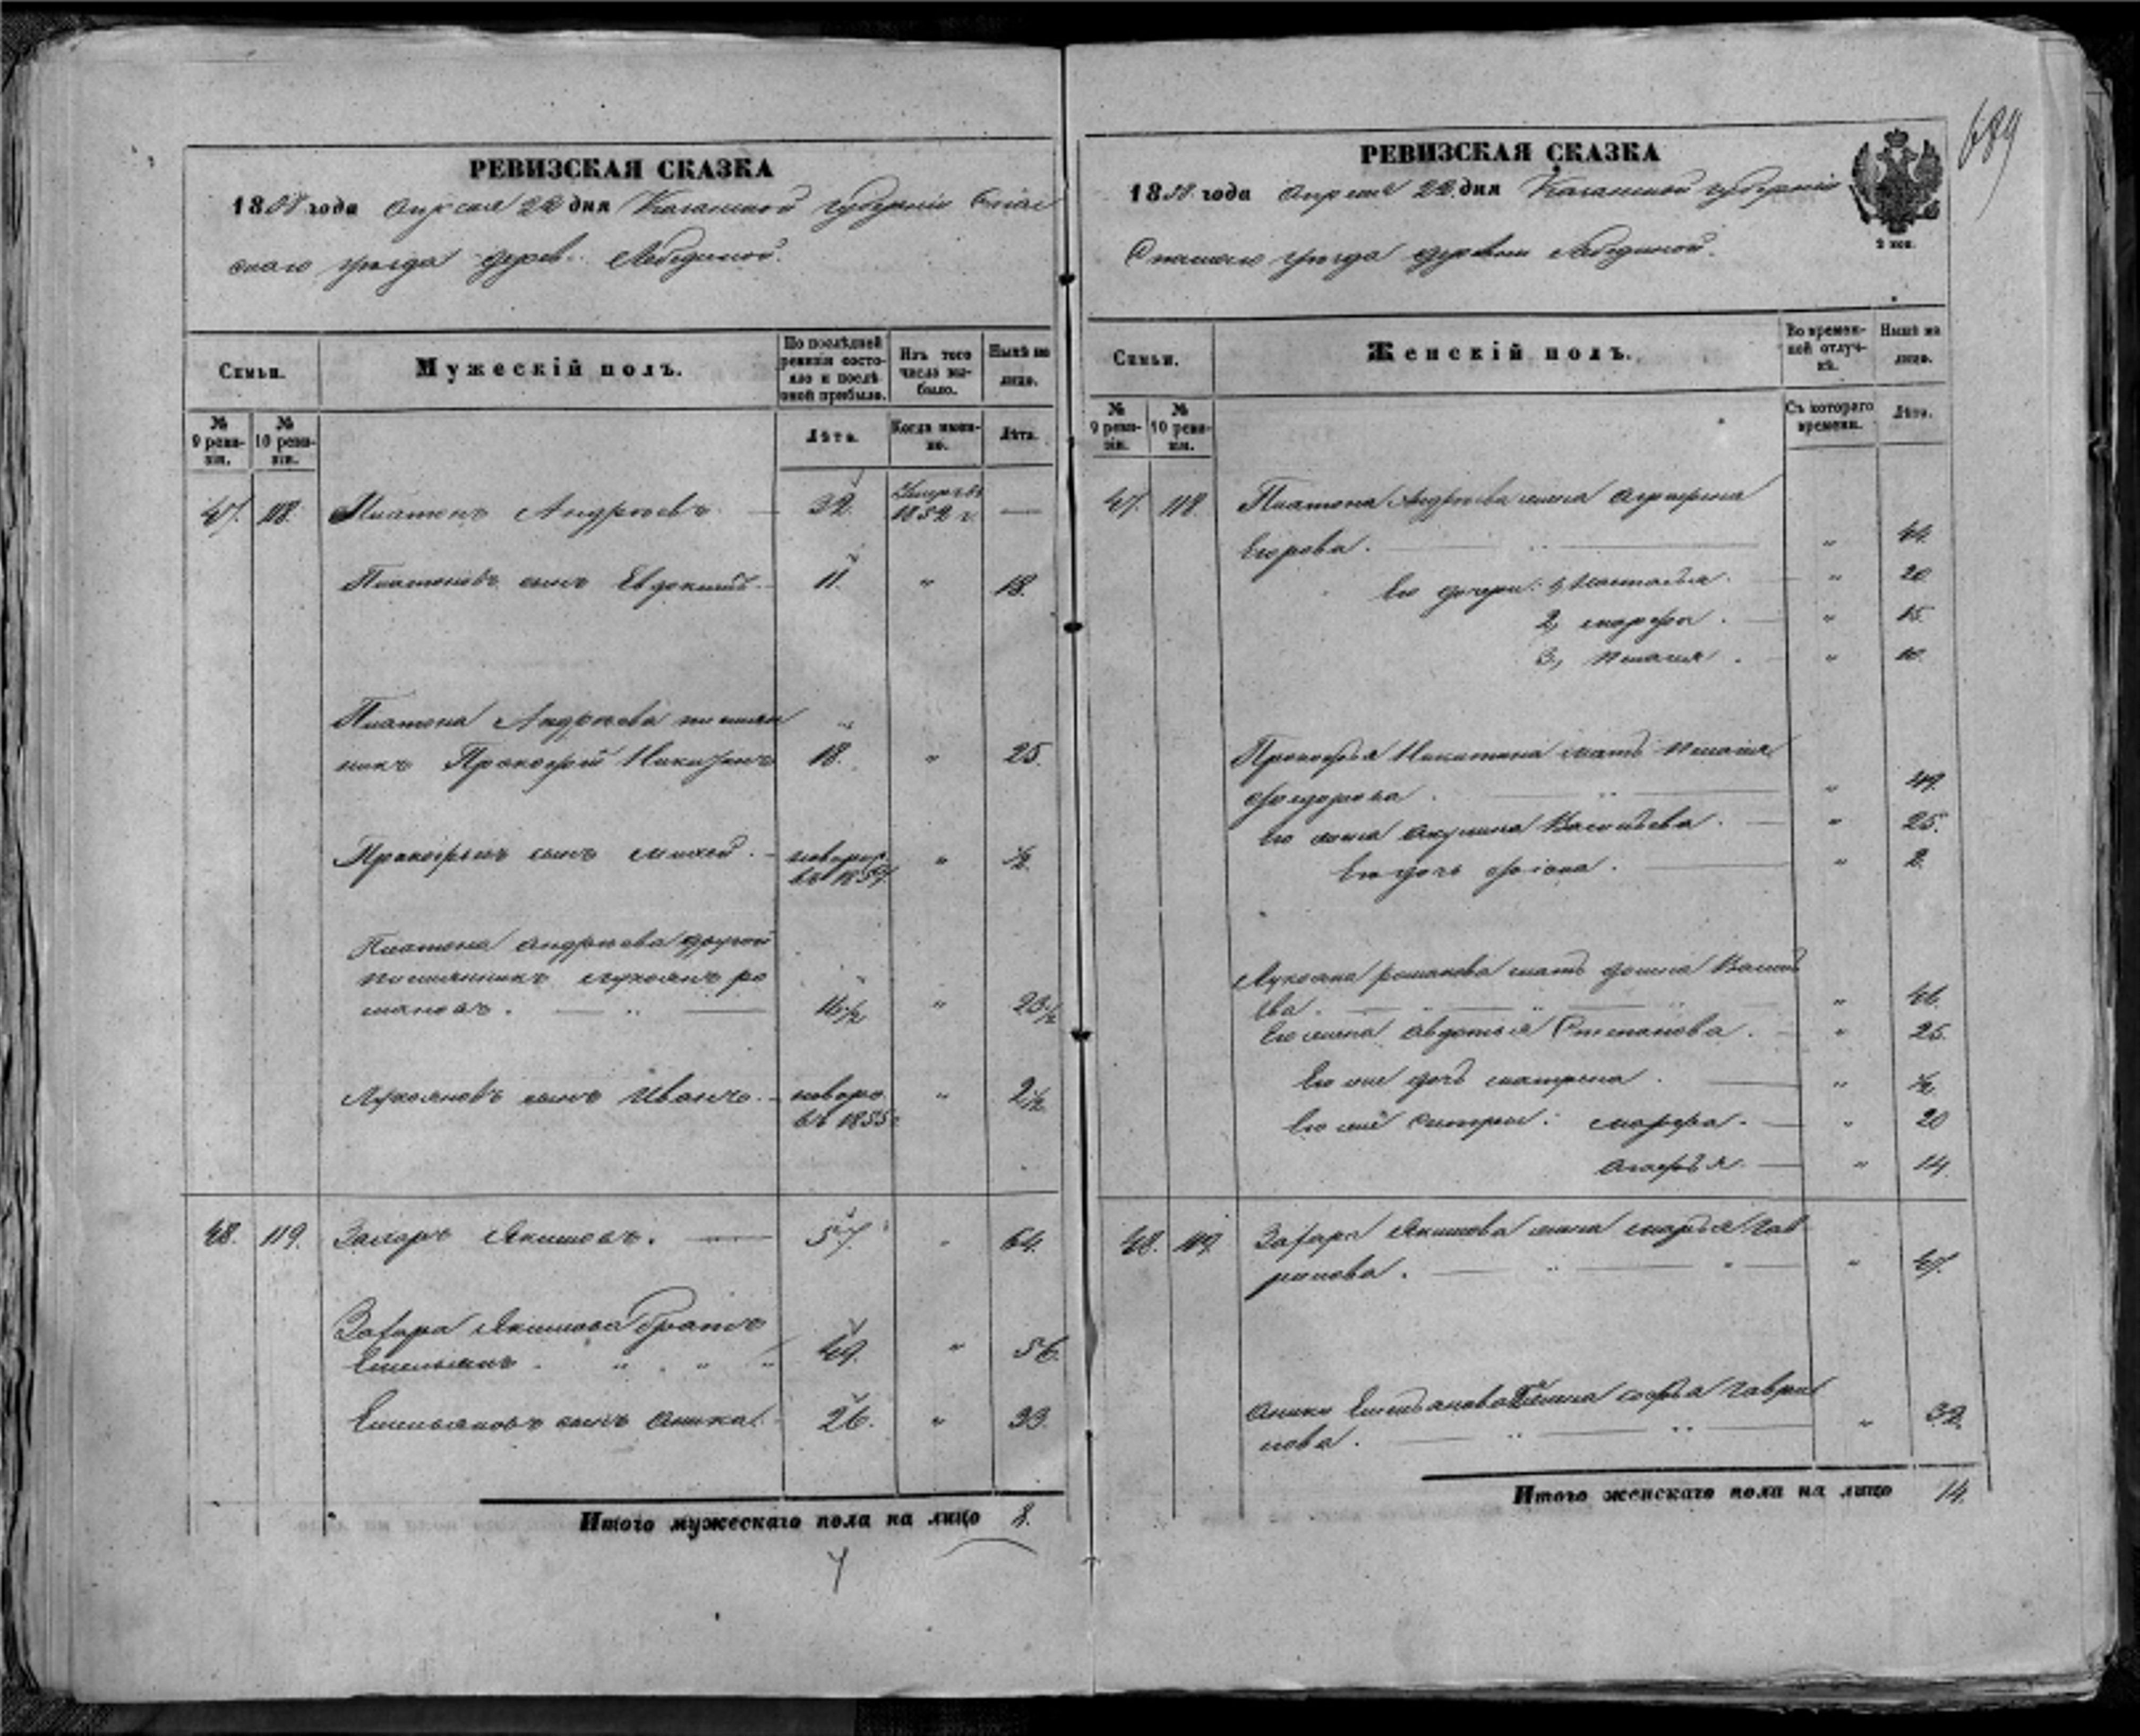 689
РЕВИЗСКАЯ СКАЗКА
1858 года Апреля 22 дня Казанской губернiи Спас
скаго уѣзда дерев. Лебединой.
Семьи.
Мужескiй полъ.
По послѣдней ревизiи состояло и послѣ оной прибыло.
Изъ того числа выбыло.
Нынѣ на лицо.
№ 9 ревизiи.
№ 10 ревизiи.
Лѣта.
Когда именно.
Лѣта.
47. 118. Платонъ Андреевъ. — 32. Умеръ въ 1852 г. —
Платоновъ сынъ Евдокимъ — 11. " 18.
Платона Андреева племян
никъ Прокофiй Никитинъ 18. " 25.
Прокофьевъ сынъ Михей. — новорож. въ 1857. " ½.
Платона Андреева другой
племянникъ Лукоянъ Ро
мановъ. — " — 16½ " 23½
Лукояновъ сынъ Иванъ. — новоро. въ 1855 г. " 2½.
48. 119. Захаръ Якимовъ. — 57. " 64.
Захара Якимова братъ
Емельянъ. " " " 49. " 56.
Емельяновъ сынъ Аника. 26. " 33.
Итого мужескаго пола на лицо 8.
РЕВИЗСКАЯ СКАЗКА
1858 года Апреля 22 дня Казанской губернiи
Спаскаго уѣзда деревни Лебединой.
2 коп.
Семьи.
Женскiй полъ.
Во временной отлучкѣ.
Нынѣ на лицо.
№ 9 ревизiи.
№ 10 ревизiи.
Съ котораго времени.
Лѣта.
47. 118. Платона Андреева жена Аграфена
Егорова. — " — " 44.
Его дочери: 1, Настасья. — " 20
2, Марфа. — " 15.
3, Пелагея. — " 10.
Прокофья Никитина мать Пелагея
Федорова. — " — " 49.
Его жена Акулина Васильева. — " 25.
Его дочь — " 2.
Лукояна Романова мать Василь
ева. — " — " — " " 46.
Его жена Авдотья Степанова. — " 25.
Его же дочь Матрена. — " ½.
Его же сестры: Марфа. — " 20
Агафья. — " 14.
48. 119. Захара Якимова жена Марья Гав
рилова. — " — " — " 47.
Аники Емельянова жена Софья Гаври
лова. — " — " — " 32.
Итого женскаго пола на лицо 14.